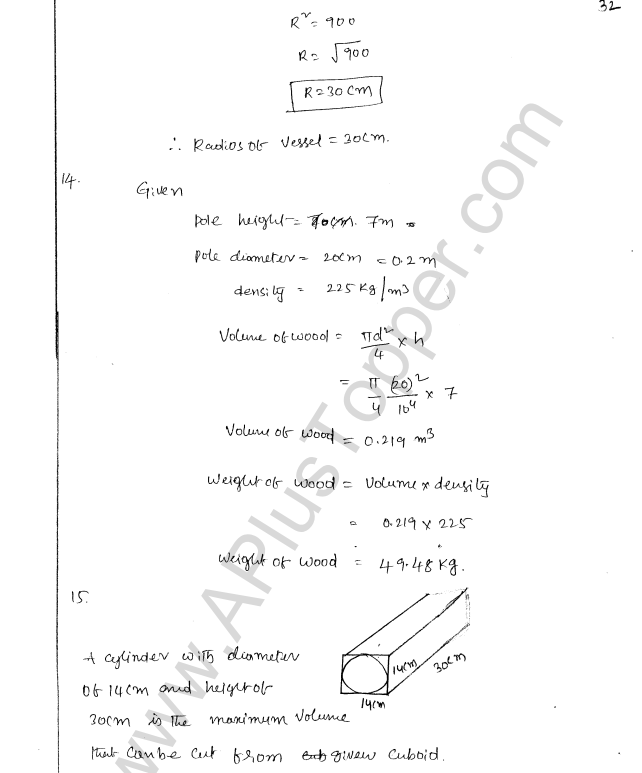 32
R² = 900
R = √900
R = 30 cm
∴ Radios of vessel = 30cm.
14.
Given
pole height = 7m
pole diameter = 20cm = 0.2 m
density = 225 kg/m³
Volume of wood = πd²/4 × h
= π/4 (20)²/10⁴ × 7
Volume of wood = 0.219 m³
weight of wood = Volume × density
= 0.219 × 225
weight of wood = 49.48 kg.
15.
14cm
30cm
14cm
A cylinder with diameter
of 14cm and height of
30cm is the maximum volume
that can be cut from given cuboid.
www.APlusTopper.com